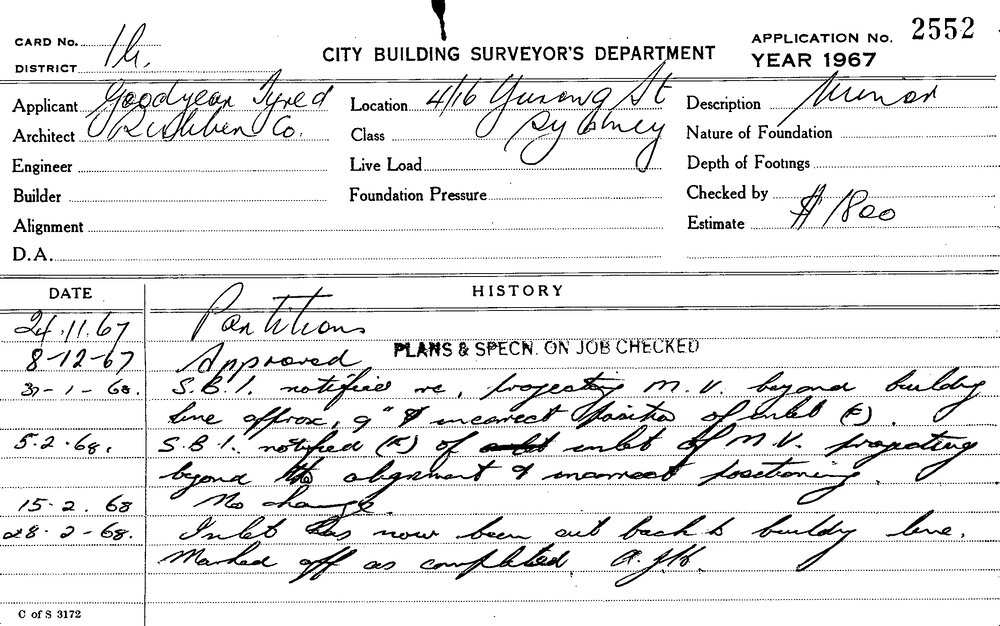 CARD No. 1h.
CITY BUILDING SURVEYOR'S DEPARTMENT
APPLICATION No. 2552
DISTRICT
YEAR 1967
Applicant Goodyear Tyred Location 4/16 Yurong St Description Minor
Architect Rubber Co. Class Sydney Nature of Foundation
Engineer Live Load Depth of Footings
Builder Foundation Pressure Checked by
Alignment Estimate $1800
D.A.
DATE HISTORY
24.11.67 Partitions
8-12-67 Approved PLANS & SPECN. ON JOB CHECKED
31-1-68. S.B.I. notified re, projecting M.V. beyond buildg
line approx, 9" & incorrect position of inlet (E).
5.2.68. S.B.I. notified (K) of inlet of M.V. projecting
beyond the alignment & incorrect positioning.
15.2.68 No change.
28.2-68. Inlet has now been cut back to buildg line.
Marked off as completed A.J.H.
C of S 3172